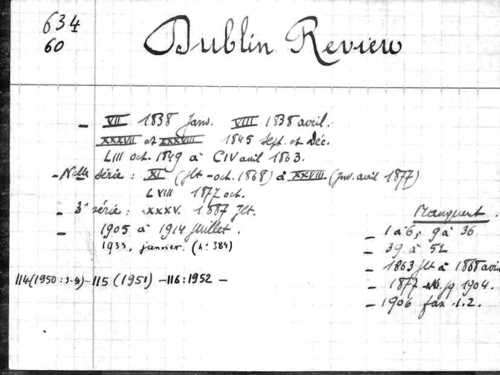 634
60
Dublin Review
- VII 1838 Janv. VIII 1838 avril.
XXXVII et XXXVIII 1845 Sept. et Déc.
LIII oct. 1849 à CIV avril 1863.
- Nelle série : XI (jlt - oct. 1868) à XXVIII (janv. avril 1877)
LVIII 1872 oct.
- 3e série : XXXV. 1887 Jlt.
- 1905 à 1914 juillet.
1933, janvier. (n° 384)
114 (1950 : 3-4) - 115 (1951) - 116 : 1952 -
Manquent
- 1 à 6, 9 à 36
- 39 à 52
- 1863 jlt à 1868 avril
- 1877 jq 1904.
- 1906 fax 1.2.